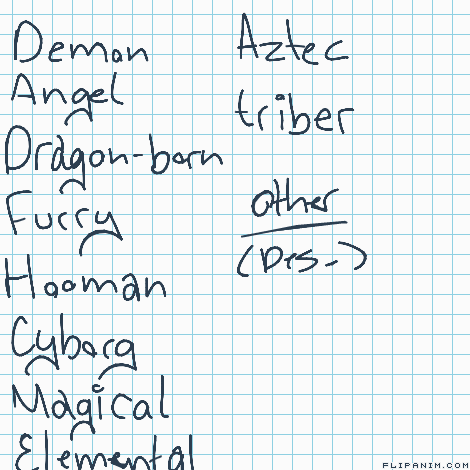 Demon
Angel
Dragon-born
Furry
Hooman
Cyborg
Magical
Elemental
Aztec
triber
other
(Des-)
FLIPANIM.COM